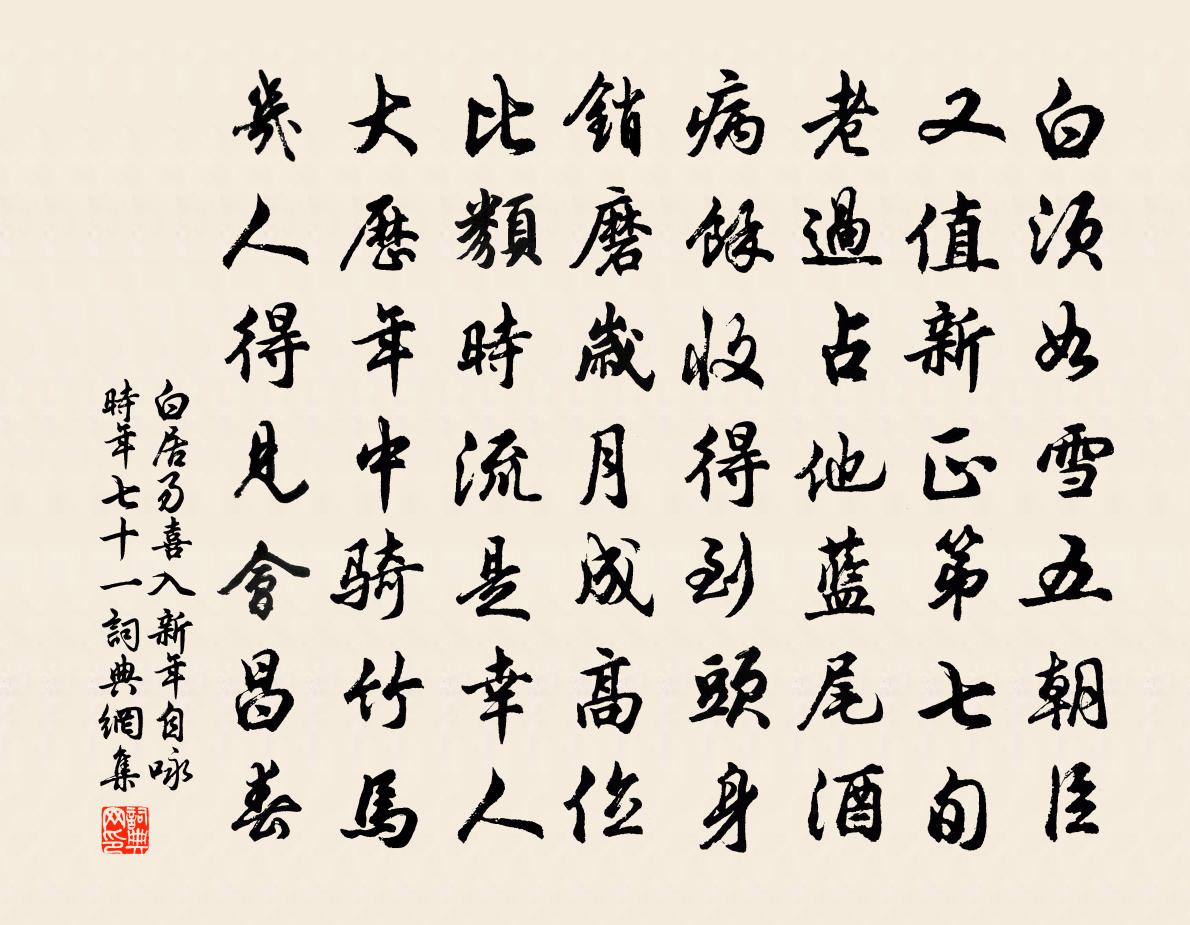 白須如雪五朝臣
又值新正第七旬
老過占他藍尾酒
病餘收得到頭身
銷磨歲月成高位
比類時流是幸人
大歷年中騎竹馬
幾人得見會昌春
白居易喜入新年自咏
時年七十一詞典網集
詞典网印